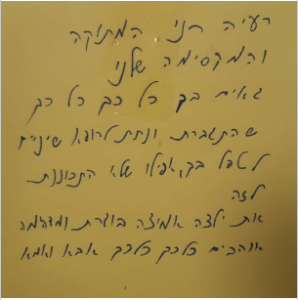 רעיה חני המתוקה
והמקסימה שלנו
גאים בך כל כך כל כך
שהתגברת ונתת לרופא שיניים
לטפל בך, אפילו שלא התכוננת
לזה
את ילדה אמיצה בוגרת ומדהימה
אוהבים כלכך כלכך אבא ואמא